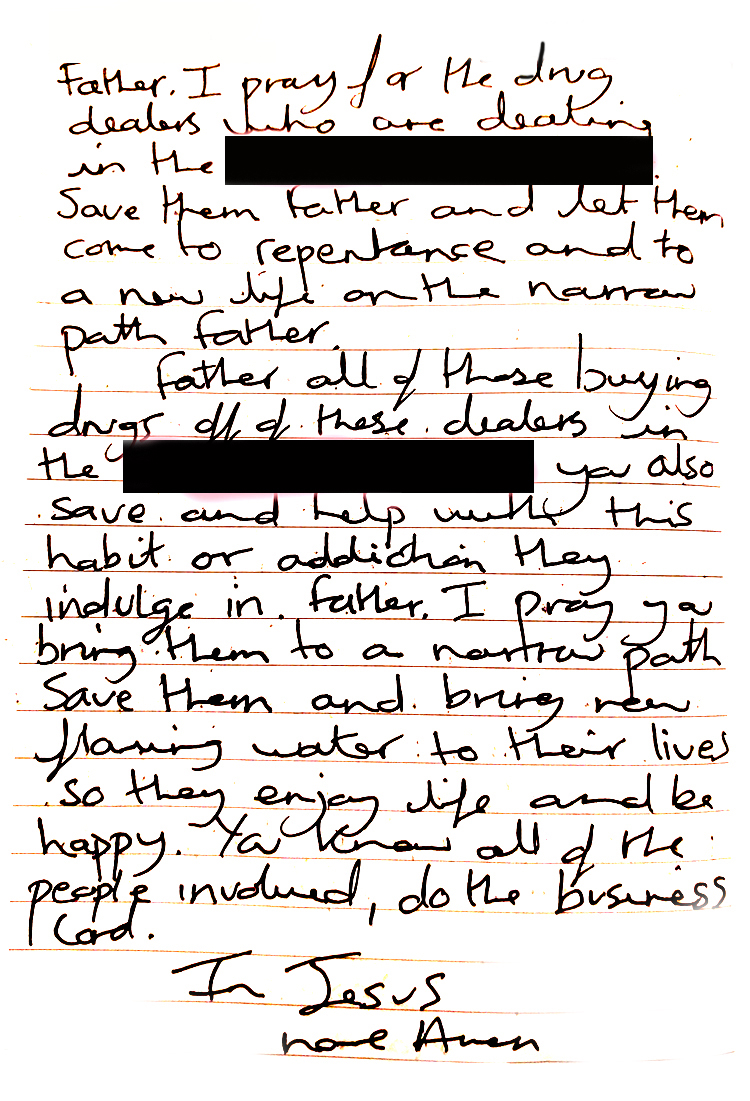 Father. I pray for the drug
dealers who are dealing
in the
Save them Father and let them
come to repentance and to
a new life on the narrow
path Father.
Father all of those buying
drugs off of these dealers in
the you also
save and help with this
habit or addiction they
indulge in. Father. I pray you
bring them to a narrow path
Save them and bring new
flowing water to their lives
so they enjoy life and be
happy. You know all of the
people involved, do the business
Lord.
In Jesus
name Amen